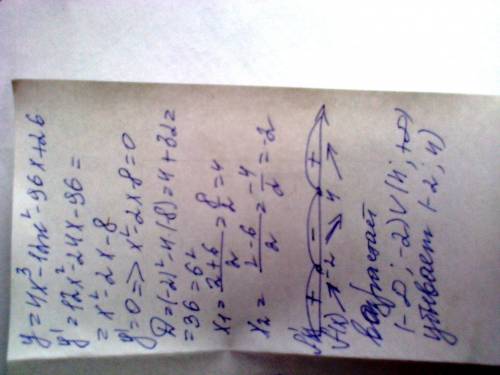 y = 4x³-12x²-96x+26
y' = 12x²-24x-96 =
= x²-2x-8
y'=0 => x²-2x-8=0
D=(-2)²-4(-8)=4+32=
= 36 = 6²
x₁ = (2+6)/2 = 8/2 = 4
x₂ = (2-6)/2 = -4/2 = -2
+ - +
f(x) -2 4
возрастает
(-∞; -2) ∪ (4; +∞)
убывает (-2; 4)